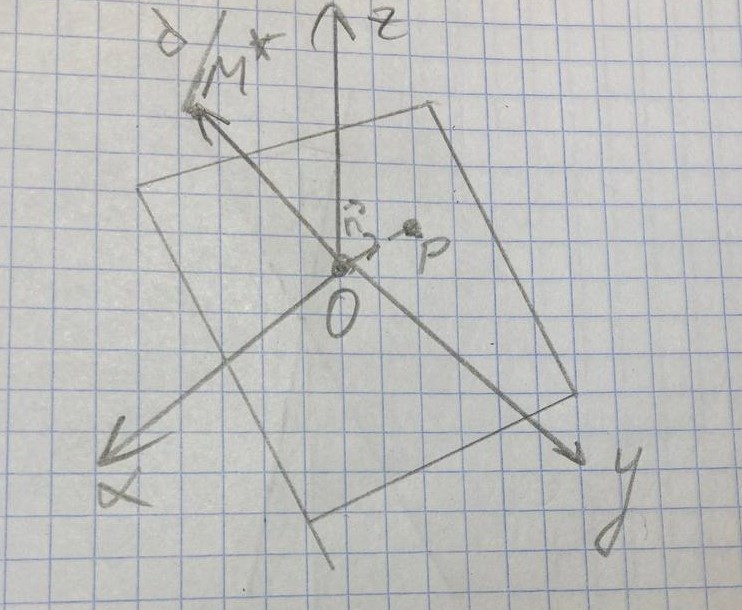 d
M*
z
n
P
O
x
y